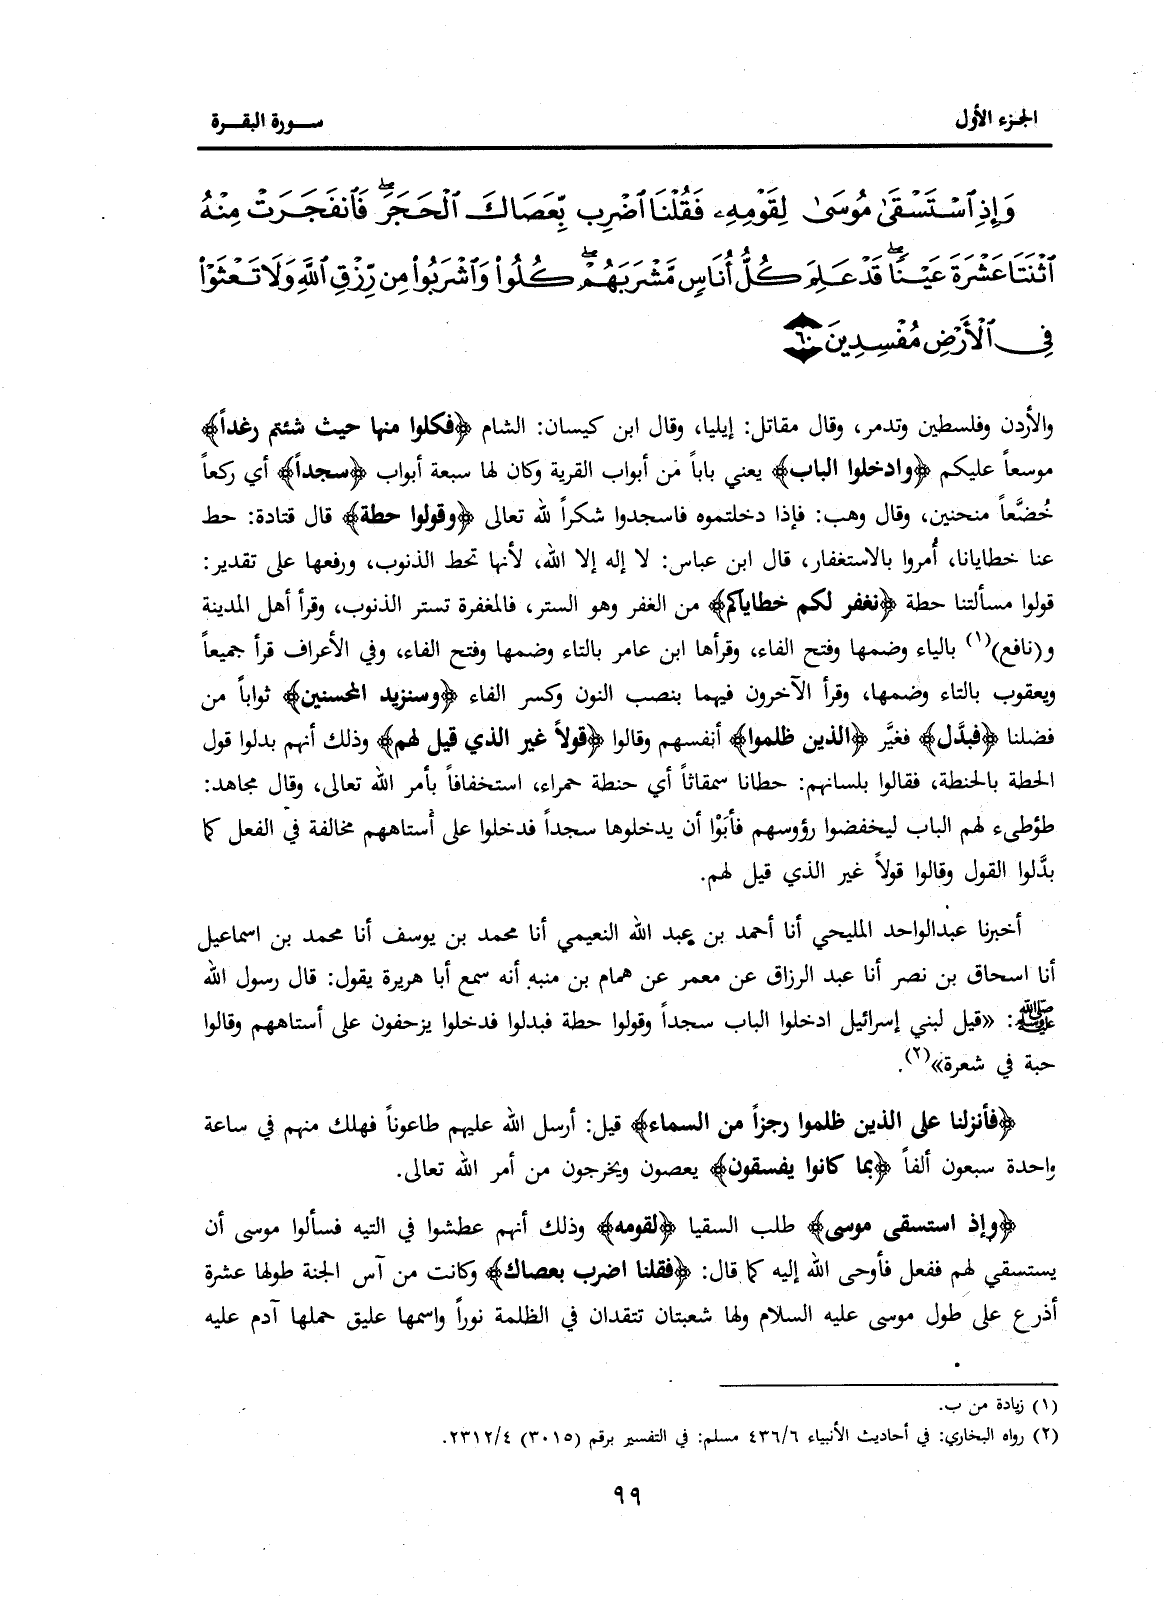 الجزء الأول
سورة البقرة
وَإِذِ ٱسْتَسْقَىٰ مُوسَىٰ لِقَوْمِهِۦ فَقُلْنَا ٱضْرِب بِّعَصَاكَ ٱلْحَجَرَۖ فَٱنفَجَرَتْ مِنْهُ
ٱثْنَتَا عَشْرَةَ عَيْنًاۖ قَدْ عَلِمَ كُلُّ أُنَاسٍ مَّشْرَبَهُمْۖ كُلُوا۟ وَٱشْرَبُوا۟ مِن رِّزْقِ ٱللَّهِ وَلَا تَعْثَوْا۟
فِى ٱلْأَرْضِ مُفْسِدِينَ ٦٠
والأردن وفلسطين وتدمر، وقال مقاتل: إيليا، وقال ابن كيسان: الشام ﴿فكلوا منها حيث شئتم رغداً﴾
موسعاً عليكم ﴿وادخلوا الباب﴾ يعني باباً من أبواب القرية وكان لها سبعة أبواب ﴿سجداً﴾ أي ركعاً
خُضَّعاً منحنين، وقال وهب: فإذا دخلتموه فاسجدوا شكراً لله تعالى ﴿وقولوا حطة﴾ قال قتادة: حط
عنا خطايانا، أُمروا بالاستغفار، قال ابن عباس: لا إله إلا الله، لأنها تحط الذنوب، ورفعها على تقدير:
قولوا مسألتنا حطة ﴿نغفر لكم خطاياكم﴾ من الغفر وهو الستر، فالمغفرة تستر الذنوب، وقرأ أهل المدينة
و(نافع)(١) بالياء وضمها وفتح الفاء، وقرأها ابن عامر بالتاء وضمها وفتح الفاء، وفي الأعراف قرأ جميعاً
ويعقوب بالتاء وضمها، وقرأ الآخرون فيهما بنصب النون وكسر الفاء ﴿وسنزيد المحسنين﴾ ثواباً من
فضلنا ﴿فبدَّل﴾ فغيَّر ﴿الذين ظلموا﴾ أنفسهم وقالوا ﴿قولاً غير الذي قيل لهم﴾ وذلك أنهم بدلوا قول
الحطة بالحنطة، فقالوا بلسانهم: حطانا سمقاثاً أي حنطة حمراء، استخفافاً بأمر الله تعالى، وقال مجاهد:
طؤطىء لهم الباب ليخفضوا رؤوسهم فأبَوْا أن يدخلوها سجداً فدخلوا على أستاههم مخالفة في الفعل كما
بدَّلوا القول وقالوا قولاً غير الذي قيل لهم.
أخبرنا عبدالواحد المليحي أنا أحمد بن عبد الله النعيمي أنا محمد بن يوسف أنا محمد بن اسماعيل
أنا اسحاق بن نصر أنا عبد الرزاق عن معمر عن همام بن منبه أنه سمع أبا هريرة يقول: قال رسول الله
ﷺ: «قيل لبني إسرائيل ادخلوا الباب سجداً وقولوا حطة فبدلوا فدخلوا يزحفون على أستاههم وقالوا
حبة في شعرة»(٢).
﴿فأنزلنا على الذين ظلموا رجزاً من السماء﴾ قيل: أرسل الله عليهم طاعوناً فهلك منهم في ساعة
واحدة سبعون ألفاً ﴿بما كانوا يفسقون﴾ يعصون ويخرجون من أمر الله تعالى.
﴿وإذ استسقى موسى﴾ طلب السقيا ﴿لقومه﴾ وذلك أنهم عطشوا في التيه فسألوا موسى أن
يستسقي لهم ففعل فأوحى الله إليه كما قال: ﴿فقلنا اضرب بعصاك﴾ وكانت من آس الجنة طولها عشرة
أذرع على طول موسى عليه السلام ولها شعبتان تتقدان في الظلمة نوراً واسمها عليق حملها آدم عليه
(١) زيادة من ب.
(٢) رواه البخاري: في أحاديث الأنبياء ٤٣٦/٦ مسلم: في التفسير برقم (٣٠١٥) ٢٣١٢/٤.
٩٩